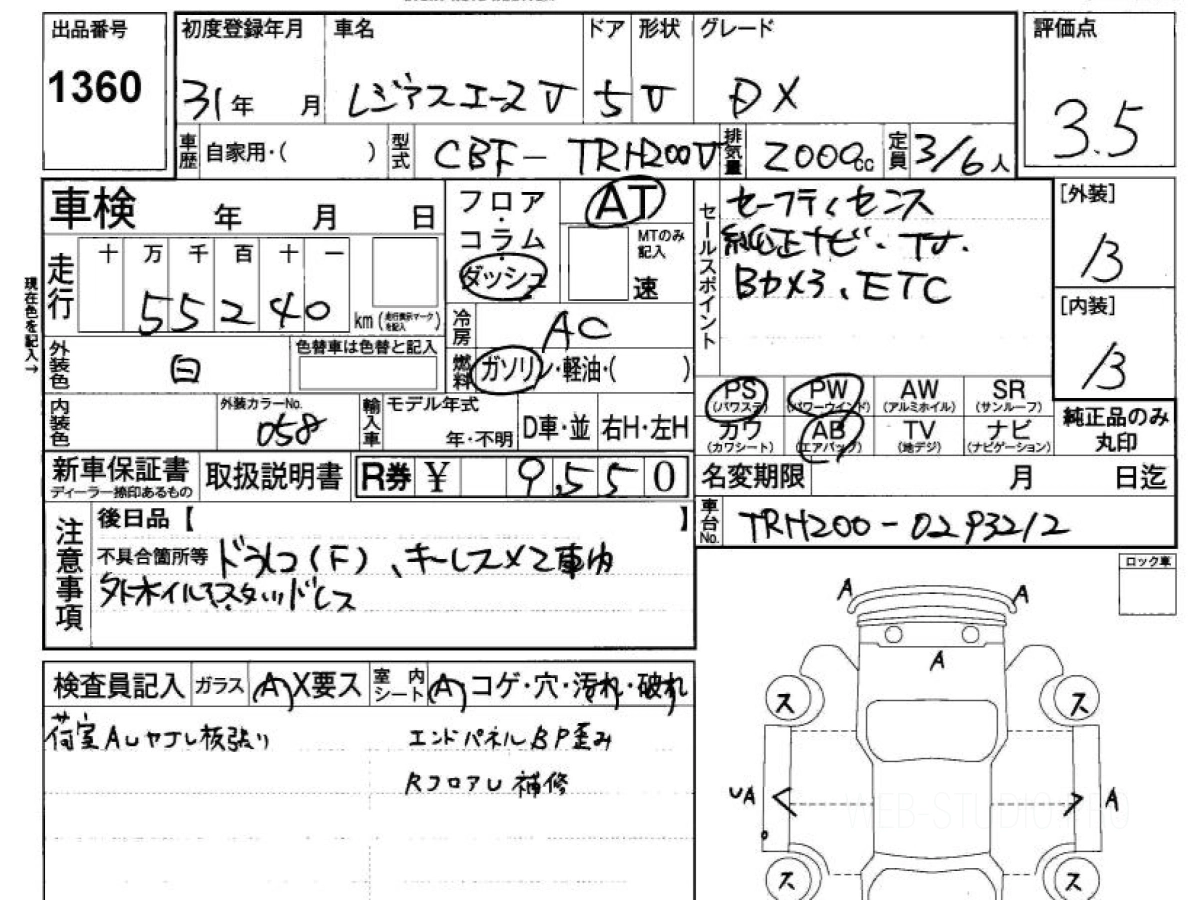 出品番号
1360
初度登録年月 車名 ドア 形状 グレード
31年 月 レジアスエースV 5 V DX
評価点
3.5
車歴 自家用・( ) 型式 CBF-TRH200V 排気量 2000cc 定員 3/6人
車検 年 月 日
フロア・コラム・ダッシュ
AT
MTのみ記入
速
セールスポイント
セーフティセンス
純正ナビ・TV.
Bカメラ、ETC
[外装]
B
[内装]
B
現在色を記入→
走行 十 万 千 百 十 一
55240 km (走行表示マークを記入)
冷房 AC
外装色 白 色替車は色替と記入
燃料 ガソリン・軽油・( )
PS PW AW SR
(パワステ) (パワーウインド) (アルミホイル) (サンルーフ)
カワ AB TV ナビ
(カワシート) (エアバック) (地デジ) (ナビゲーション)
純正品のみ丸印
内装色 外装カラーNo. 058 輸入車 モデル年式 年・不明 D車・並 右H・左H
新車保証書 取扱説明書 R券 ¥ 9,550
ディーラー捺印あるもの
名変期限 月 日迄
車台No. TRH200-0293212
注意事項
後日品【 】
不具合箇所等 ドラレコ(F)、キーレス×2車内
ロック車
検査員記入 ガラス A X要ス 室内シート A コゲ・穴・汚れ・破れ
荷室AUヤブレ板張り エンドパネルBP歪み
RフロアU 補修
A A
A
ス ス
UA A
ス ス
WEB-STUDIO.PRO